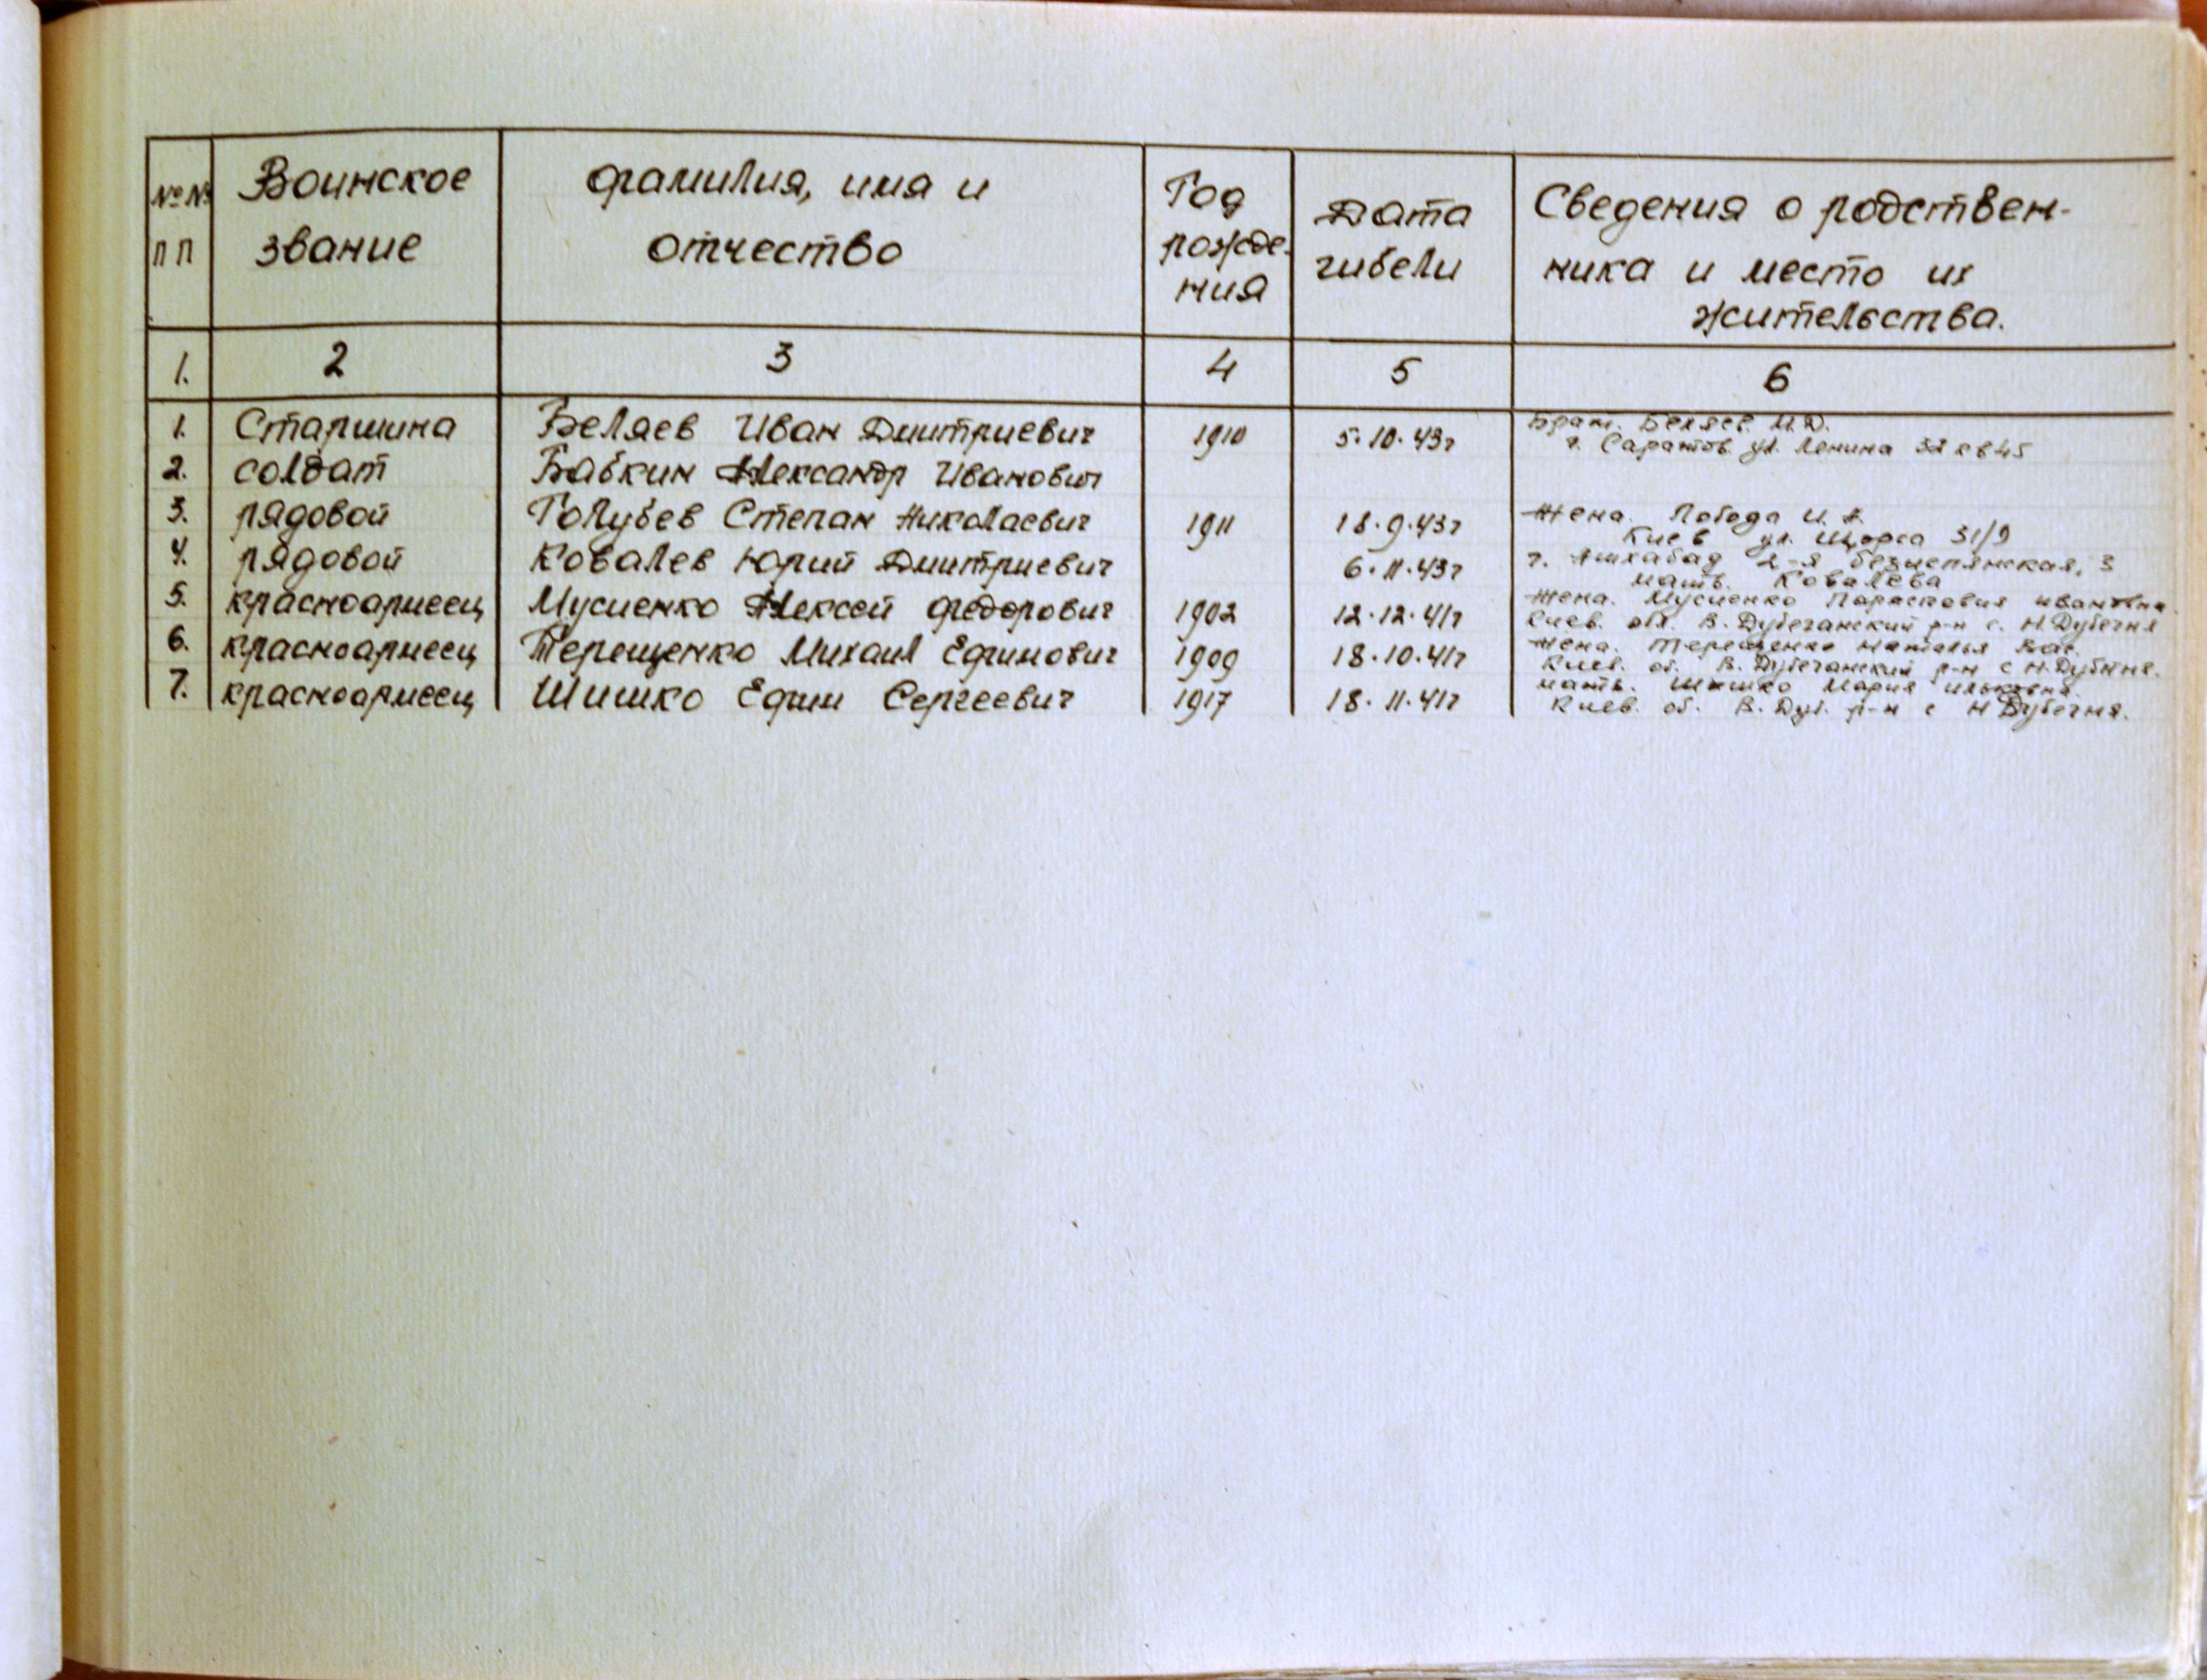 №№ пп Воинское звание Фамилия, имя и отчество Год рожде-ния Дата гибели Сведения о родствен-ника и место их жительства.
1. 2 3 4 5 6
1. Старшина Беляев Иван Дмитриевич 1910 5.10.43г Брат. Беляев И.Д.
г. Саратов ул. Ленина 32 кв 45
2. солдат Бабкин Александр Иванович
3. рядовой Голубев Степан Николаевич 1911 18.9.43г Жена. Лобода И. А.
Киев ул. Щорса 31/9
4. рядовой Ковалев Юрий Дмитриевич 6.11.43г г. Ашхабад 2-я 3
мать. Ковалева
5. красноармеец Мусиенко Алексей Федорович 1902 12.12.41г Жена. Мусиенко Парасковия Ивановна.
Киев. обл. В. Дубечанский р-н с. Н. Дубечня
6. красноармеец Терещенко Михаил Ефимович 1909 18.10.41г Жена. Терещенко Наталья Вас.
Киев. об. В. Дубечанский р-н с Н. Дубечня.
7. красноармеец Шишко Ефим Сергеевич 1917 18.11.41г мать. Шишко Мария Ильковна.
Киев. об. В. Дуб. р-н с Н Дубечня.